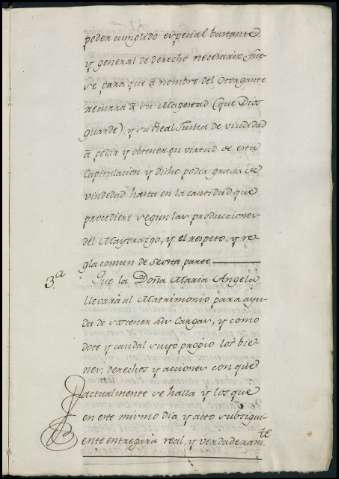 poder cumplido especial bastante
y general de derecho necesario fue-
se para que á nombre del otorgante
recurra á su Magestad (que Dios
guarde) y su Real Junta de viudedad
á pedir y obtener en virtud de esta
Capitulacion y dicho poder gracia de
viudedad hasta en la cantidad que
procediere segun las producciones
del Mayorazgo, y el respeto, y re-
gla comun de sexta parte
3.a Que la Doña Maria Angela
llevará al Matrimonio para ayu-
da de sostener sus Cargas, y como
dote y caudal suyo propio los bie-
nes, derechos y acciones con que
actualmente se halla y los que
en este mismo dia y acto subsigui-
ente entregará real, y verdaderam.te